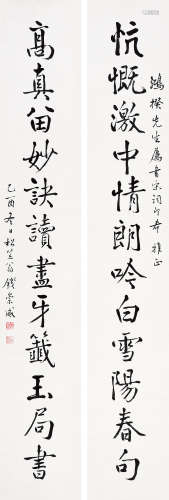 鴻揆先生屬書宋詞即希雅正
忼慨激中情朗吟白雪陽春句
髙真留妙訣讀盡牙籤玉局書
乙酉冬日 錢崇威